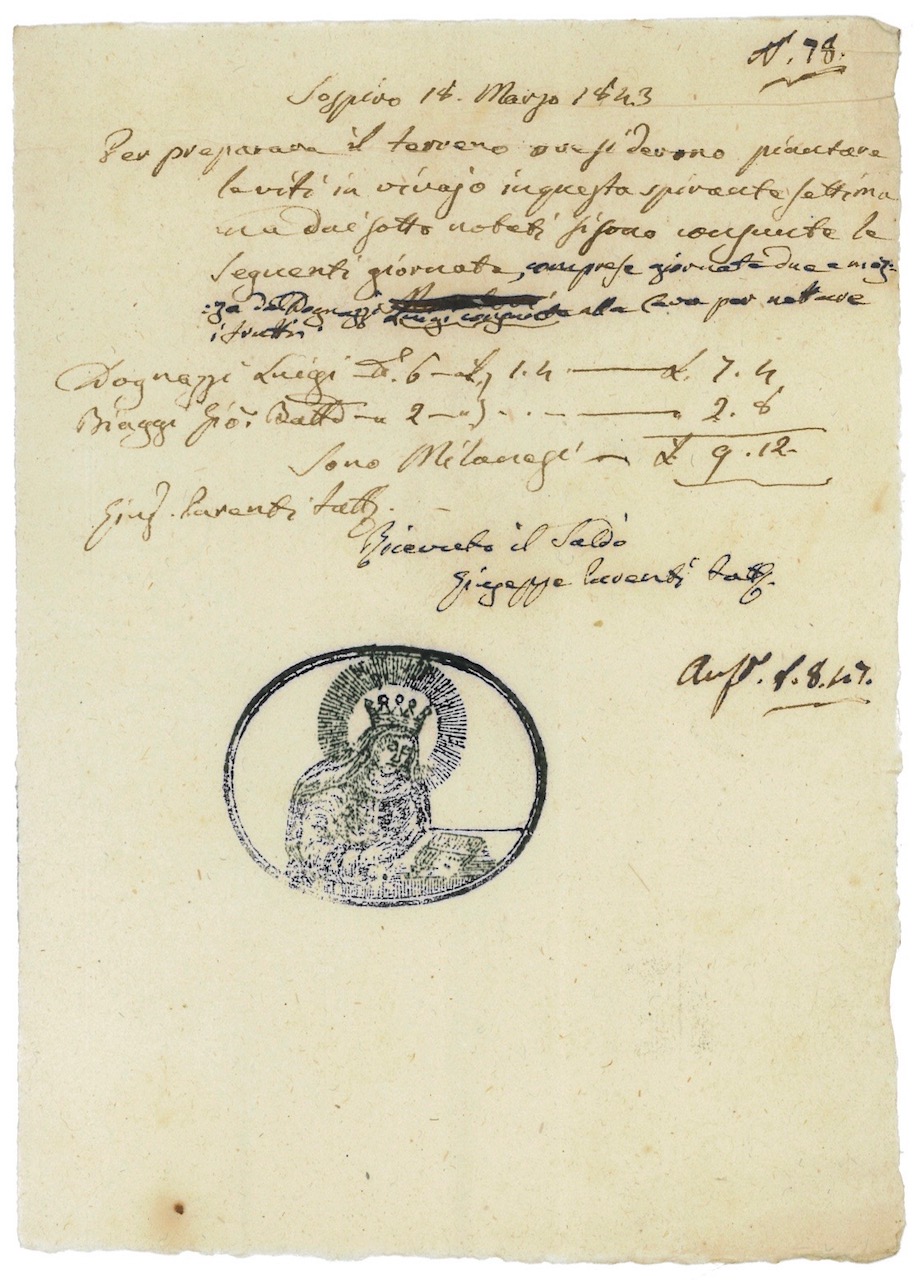 N. 78.
Sospiro 18. Marzo 1843
Per preparare il terreno ove si devono piantare
le viti in vivajo in questa spirante settima
na dai sotto notati si sono consunte le
Seguenti giornate, comprese giornate due e mez=
=za da Dognazzi Luigi consunte alla Cava per nettare
i frutti
Dognazzi Luigi Gte. 6 — L. 1.4 — L. 7.4
Biaggi Gio. Batta — 2 — " — 2.8
Sono Milanesi — L 9.12
Gius. Parenti Fatt.
Ricevuto il Saldo
Giuseppe Parenti Fatt.
Aust. 8.47.